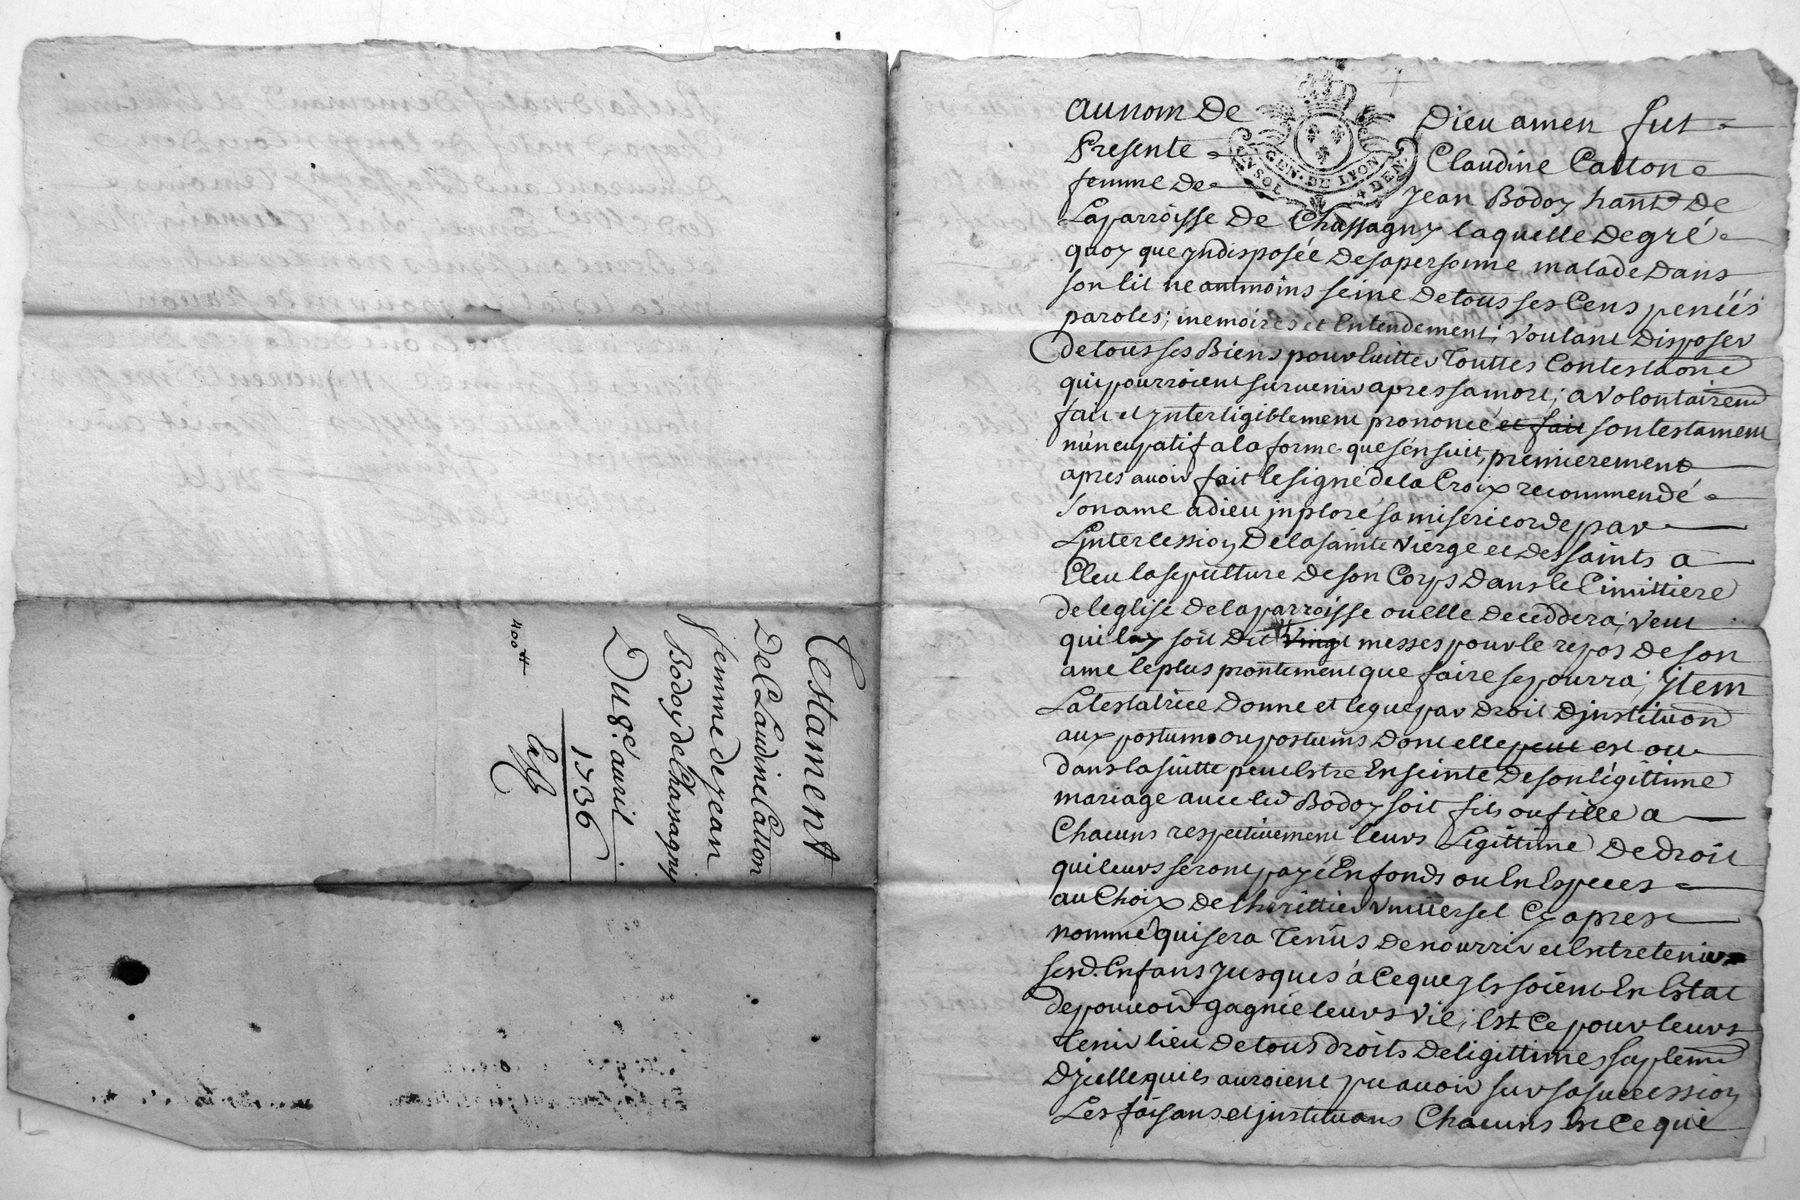 Testament
De Claudine Catton
femme de jean
Bodoy de Chassagny
Du 8e. auril
1736
400tt
au nom De Dieu amen fut
Presente Claudine Catton
femme De Jean Bodoy hant De
La parroisse De Chassagny laquelle De gré
quoy que jndisposée De sa personne malade Dans
son lit neanmoins seine De tous ses Cens pencéés
paroles, memoires et Entendement, Voulant Disposer
de tous ses Biens pour Euitter Touttes Contestaons
qui pourroient suruenir apres sa mort, a Volontairemt
fait et jnteligiblement prononcé et fait son testament
nuncupatif a la forme que s'en suit, premierement
apres auoir fait le signe de la Croix recommendé
son ame a dieu jnploré sa misericorde par
Ljntercession De la sainte Vierge et Des saints a
Eleu la sepulture De son Corps Dans le Cimittiere
de leglise De la parroisse ou elle Deceddera, Veut
qui luy soit Dit Vingt messes pour le repos De son
ame le plus prontement que faire se pourra, jtem
La testatrice Donne et legue par Droit Djnstituon
aux postume ou postumes Dont elle peut est ou
dans la suitte peut Estre Enseinte De son légittime
mariage auec led Bodoy soit fils ou fille a
Chacuns respectiuement leurs Légittime De droit
qui leurs seront payé En fonds ou En Especes
au Choix De Lherittier Vniuersel Cy apres
nommé qui sera Tenus De nourrir et Entretenir
sesd. Enfans jusques à Ce que jls soient En Estat
de pouuoir gagnié leurs Vie, Est Ce pour leurs
Tenir lieu De tous droits De ligittimes suplemt
Djcelle quils auroient pu auoir sur sa sucession
Les faisans et jnstituans Chacuns En Ce qui
GEN. DE LYON